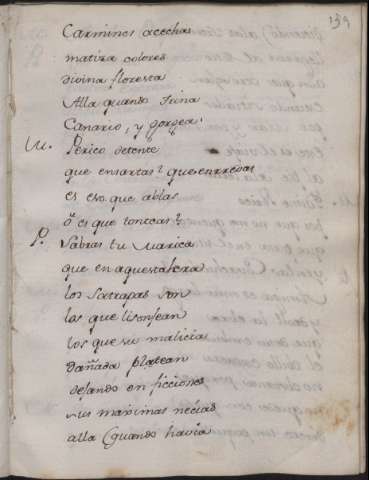 139
Carmines acecha
matiza colores
divina floresta
Alla quando trina
Canario, y gorgea.
M. Perico detente
que ensartas? que enrredas
es eso que ablas
ó es que tonteas?
P. Sabras tu Marica
que en aquesta hera
los Satrapas son
los que lisonjean
los que su malicia
dañada platean
dejando en ficciones
sus maximas necias
alla quando havia